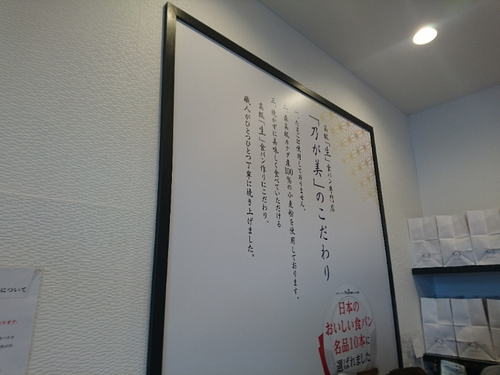 高級「生」食パン専門店
「乃が美」のこだわり
一、たまごは使用しておりません。
二、最高級カナダ産100%の小麦粉を使用しております。
三、焼かずに美味しく食べていただける
高級「生」食パン作りにこだわり、
職人がひとつひとつ丁寧に焼き上げました。
日本の
おいしい食パン
名品10本に
選ばれました
について